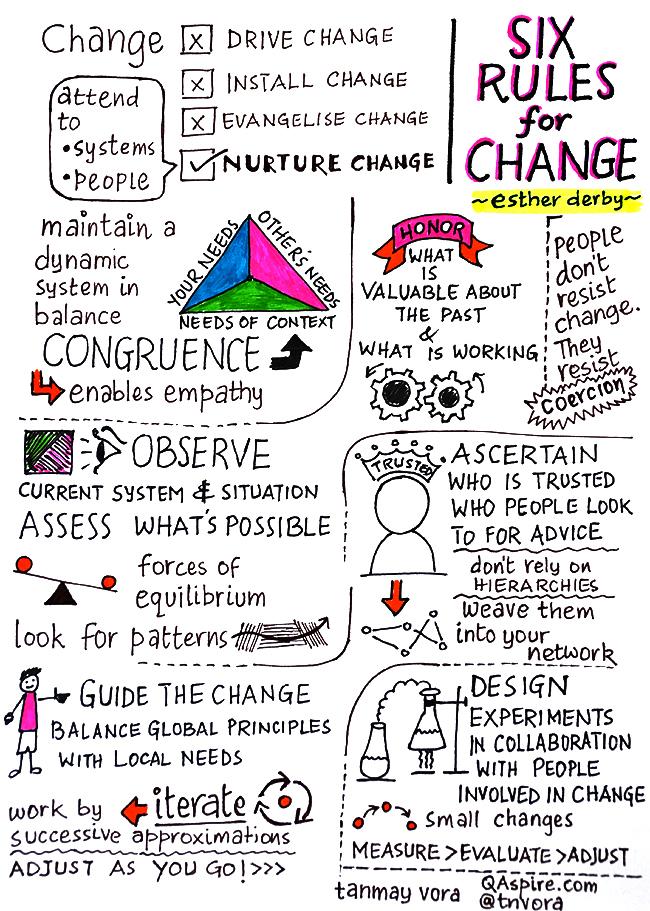 Change
X DRIVE CHANGE
X INSTALL CHANGE
X EVANGELISE CHANGE
NURTURE CHANGE
attend
to
• systems
• people
SIX
RULES
for
CHANGE
~esther derby~
maintain a
dynamic
system in
balance
YOUR NEEDS
OTHER'S NEEDS
NEEDS OF CONTEXT
CONGRUENCE
enables empathy
HONOR
WHAT
IS
VALUABLE ABOUT
THE PAST
&
WHAT IS WORKING
PEOPLE
don't
resist
change.
They
resist
COERCION
OBSERVE
CURRENT SYSTEM & SITUATION
ASSESS WHAT'S POSSIBLE
forces of
equilibrium
look for patterns
TRUSTED
ASCERTAIN
WHO IS TRUSTED
WHO PEOPLE LOOK
TO FOR ADVICE
don't rely on
HIERARCHIES
weave them
into your
network
GUIDE THE CHANGE
BALANCE GLOBAL PRINCIPLES
WITH LOCAL NEEDS
work by iterate
successive approximations
ADJUST AS YOU GO! >>>
DESIGN
EXPERIMENTS
IN COLLABORATION
WITH PEOPLE
INVOLVED IN CHANGE
small changes
MEASURE > EVALUATE > ADJUST
tanmay vora
QAspire.com
@tnvora